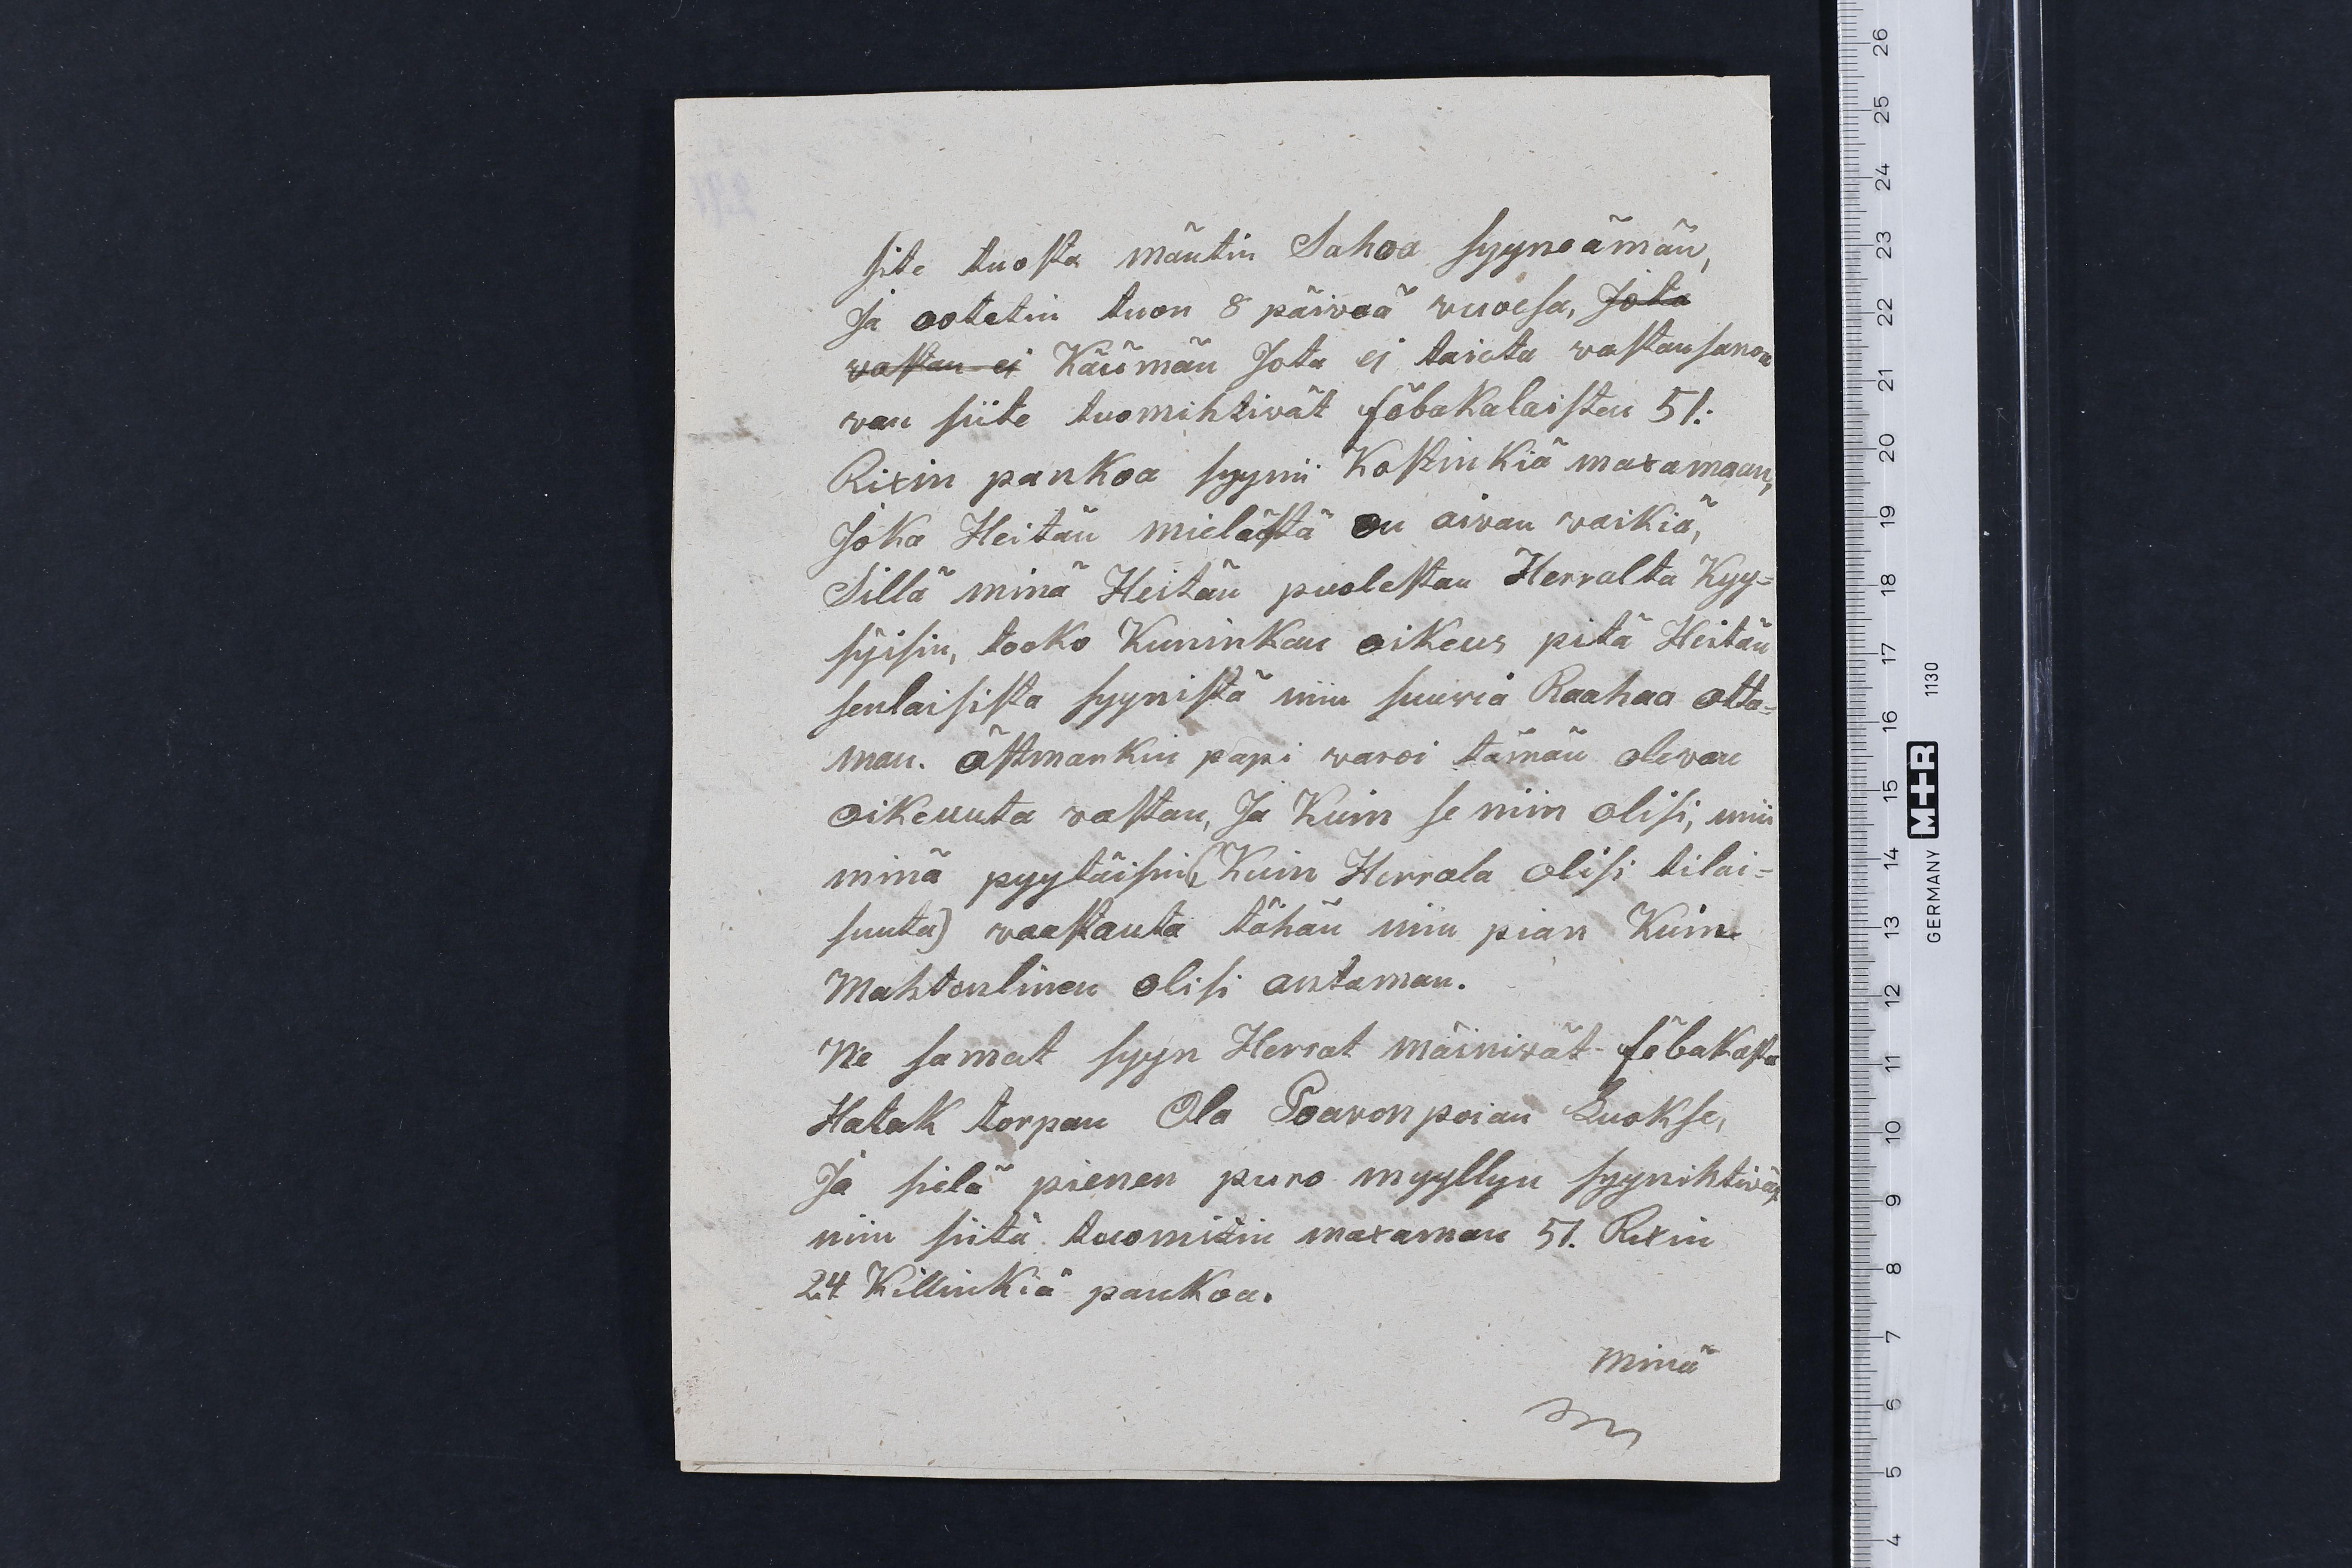 site tuosta mäntin Sahoa syyneämän,
Ja ootetin tuon 8 päiwää wuoesa, Jota
wastan ei Käümän Jota ej taieta wastansanoa
wan siite tuomihtiwät föbakalaisten 51:
Rixin pankoa syynii Kostinkiä maxamaan,
Joka Heitän mielästä on aiwan waikiä,
Sillä minä Heitän puolestan Herralta Kyy=
syisin, tooko Kuninkan oikeus pitä Heitän
senlaisista syynistä niin suuria Raahaa otta=
man. Östmankin papi waroi tämän olewan
oikeuuta wastan, Ja Kuin se niin olisi, niin
minä pyytäisin (Kuin Herrala olisi tilai=
suuta) waastauta tähän niin pian Kuin
Mahtonlinen olisi antaman.
Ne samat syyn Herrat mäinivät föbakasta
Hatak torpan Ola Poavonpoian Luokse,
Ja sielä pienen puro myyllyn syynihtiwät
niin siitä tuomitin maxaman 51. Rixin
24 Killinkiä pankoa.
Minä